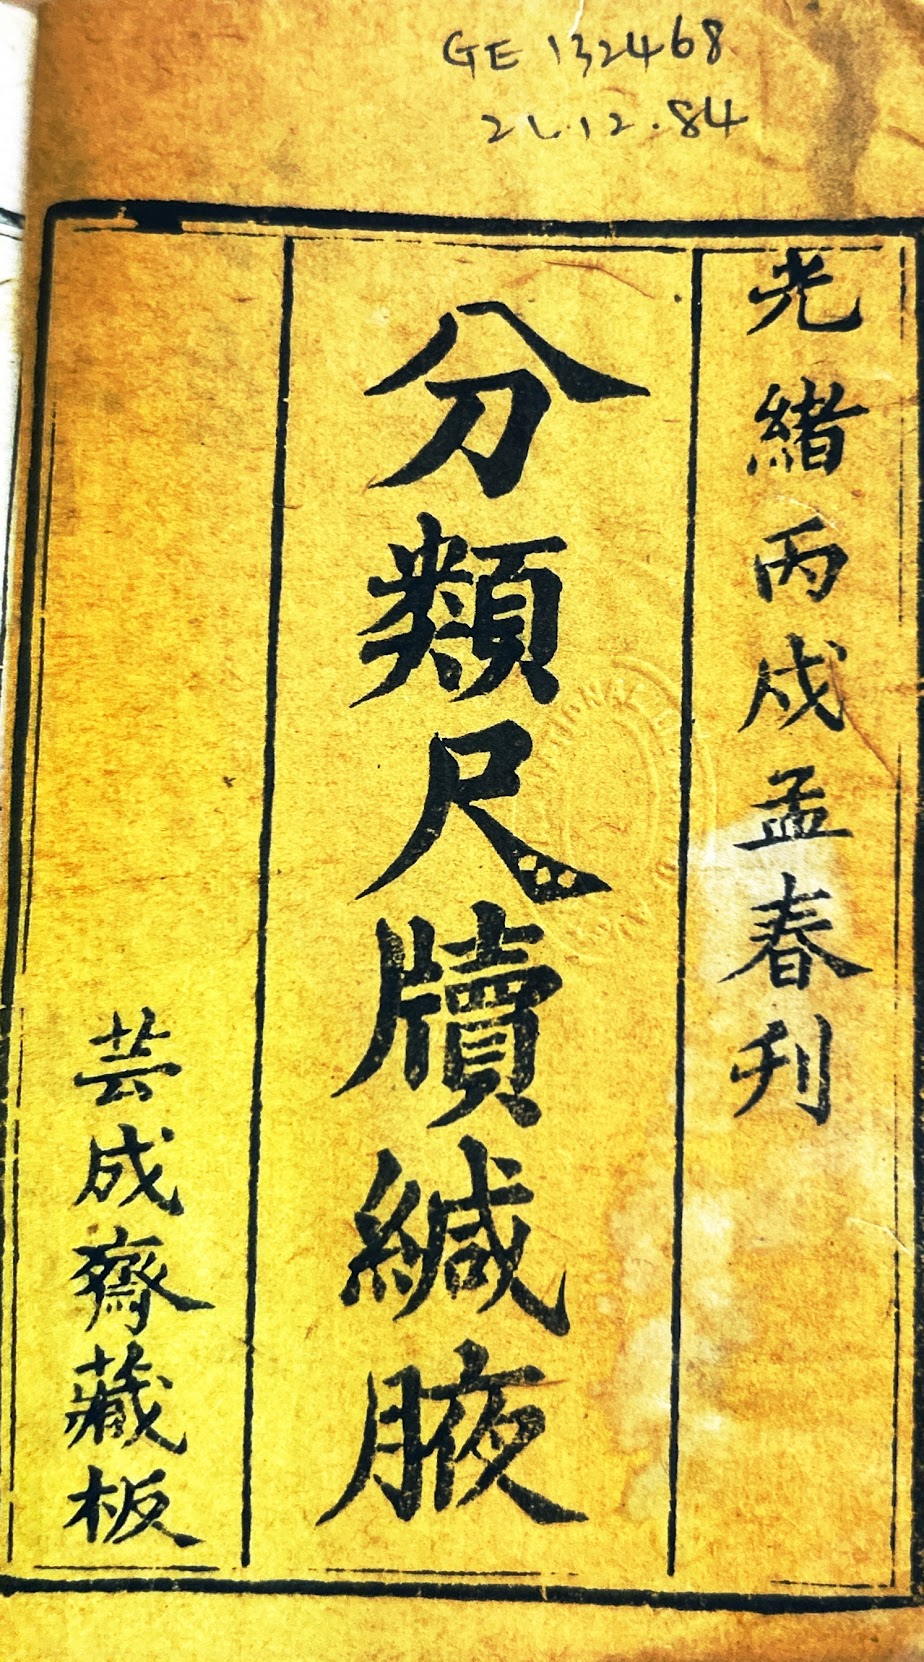 GE 132468
21.12.84
光緒丙戌孟春刋
分類尺牘緘腋
芸成齋藏板